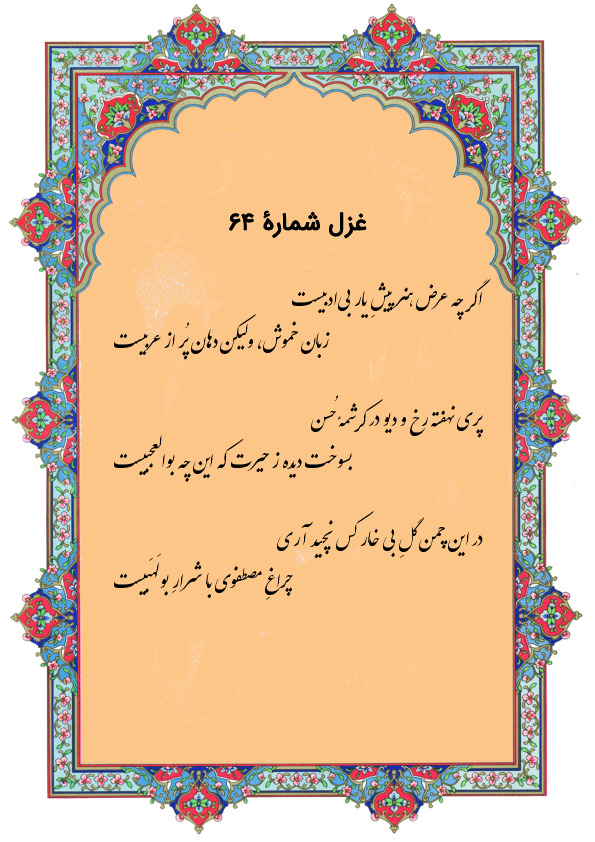 غزل شمارهٔ ۶۴
اگر چه عرض هنر پیشِ یار بی‌ادبیست
زبان خموش، ولیکن دهان پُر از عربیست
پری نهفته رخ و دیو در کرشمهٔ حُسن
بسوخت دیده ز حیرت که این چه بوالعجبیست
در این چمن گلِ بی خار کس نچید آری
چراغِ مصطفوی با شرارِ بولَهَبیست